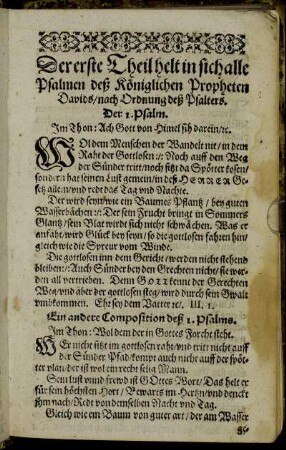 Der erste Theil helt in sich alle
Psalmen deß Königlichen Propheten
Davids / nach Ordnung deß Psalters.
Der 1. Psalm.
Im Thon: Ach Gott von Himel sih darein / ꝛc.
WOl dem Menschen der Wandelt nit / in dem
Raht der Gottlosen :/: Noch auff den Weg
der Sünder tritt / noch sitzt da Spötter
sonder hat seinen Lust gemein / in deß HERREN Ge-
setz allein / vnd redt das Tag vnd Nachte.
Der wird seyn / wie ein Baumes Pflantz / bey guten
Wasserbächen :/: Der sein Frucht bringt in Sommers
Glantz / sein Blat wirdt sich nicht schwächen. Was er
anfaht wird Glück bey seyn / so die gottlosen fahren hin /
gleich wie die Spreur vom Winde.
Die gottlosen inn dem Gericht / werden nicht stehend
bleiben :/: Auch Sünder bey den Grechten nicht / sie wer-
den all vertrieben. Denn Gott kenne der Gerechten
Weg / vnd aber der gottlosen steg / wird durch sein Gwalt
vmbkommen. Ehr sey dem Vatter ꝛc. III, 1.
Ein andere Composition deß 1. Psalms.
Im Thon: Wol dem der in Gottes Forcht steht.
WEr nicht sitzt im gottlosen raht / vnd tritt nicht auff
der Sünder Pfad / kompt auch nicht auff der spöt-
ter plan / der ist wol ein recht selig Mann.
Sein lust vnnd frewd ist GOttes Wort / Das helt er
für sein höchsten Hort / Bewarts im Hertzn / vnd denckt
jhm nach / Redt von demselben Nacht vnd Tag.
Gleich wie ein Baum von guter art / der am Wasser